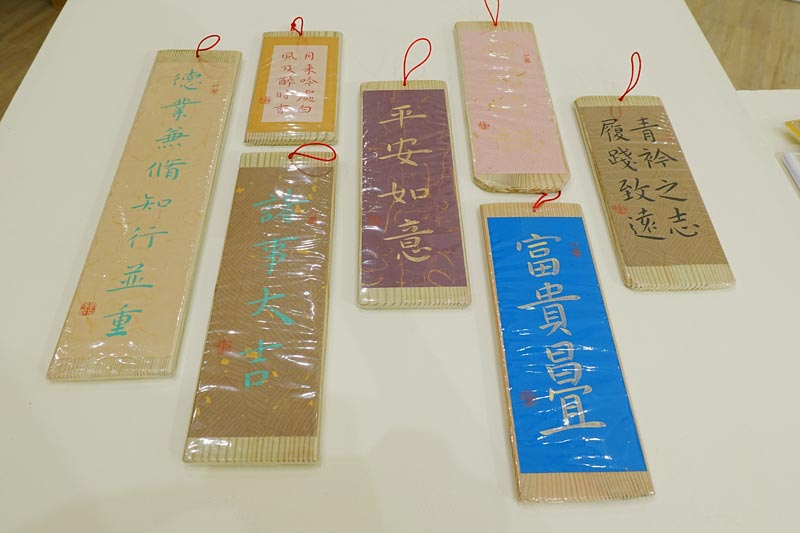 德業兼脩知行並重
月來吟
風及醉時書
諸事大吉
平安如意
富貴昌宜
青衿之志
履踐致遠